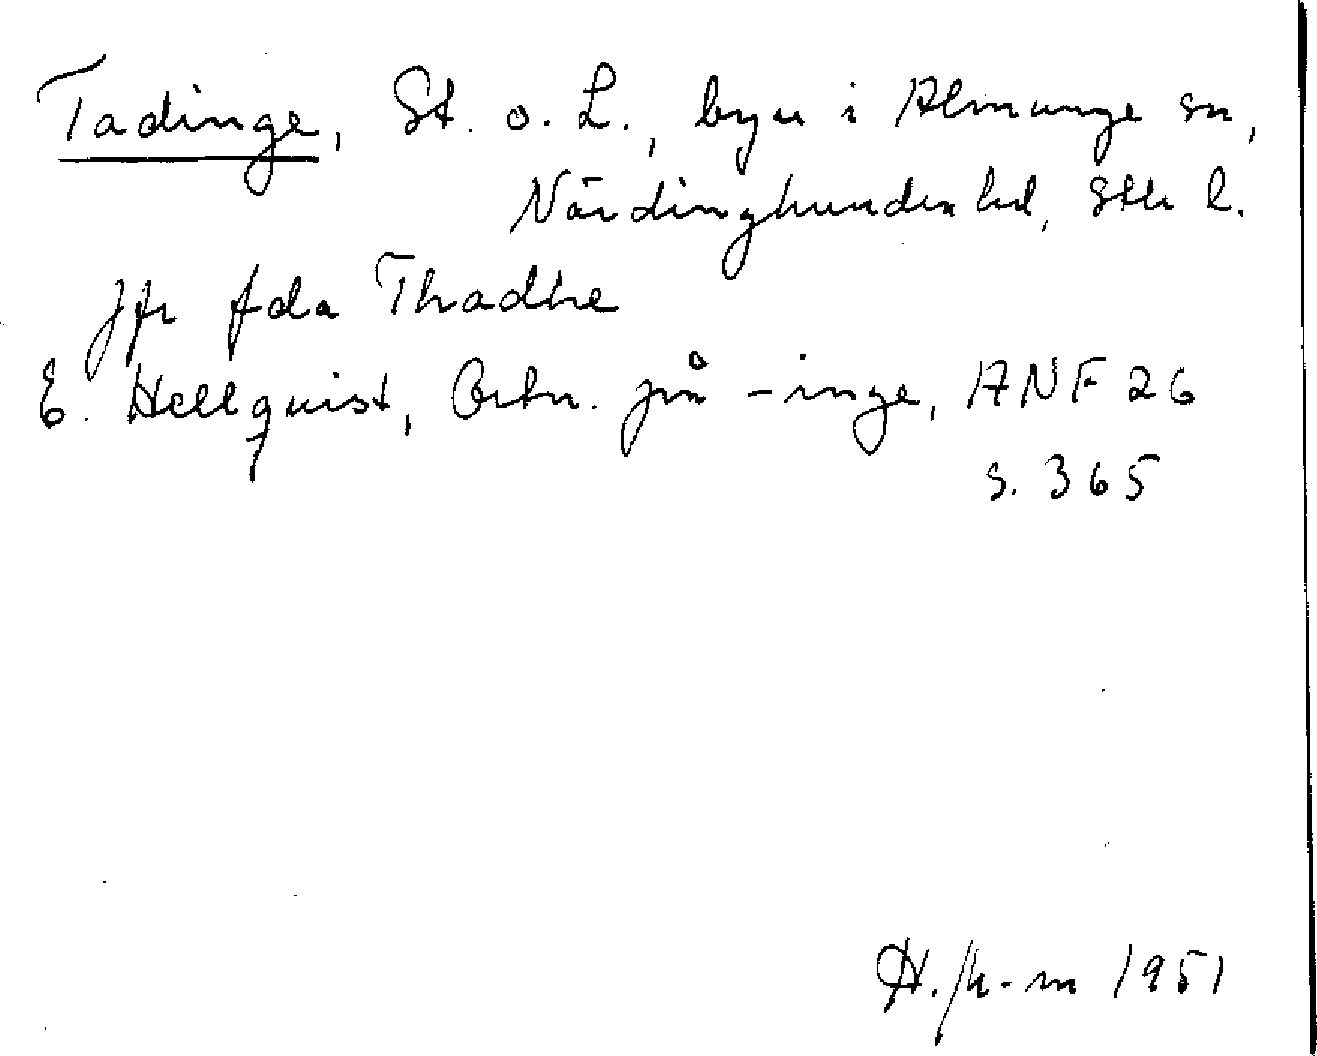 Tadinge, St. o. L., byar i Almunge sn,
Närdinghundra hd, Sthlms l.
Jfr fda Thadhe
E. Hellquist, Ortn. på -inge, ANF 26
s. 365
1951